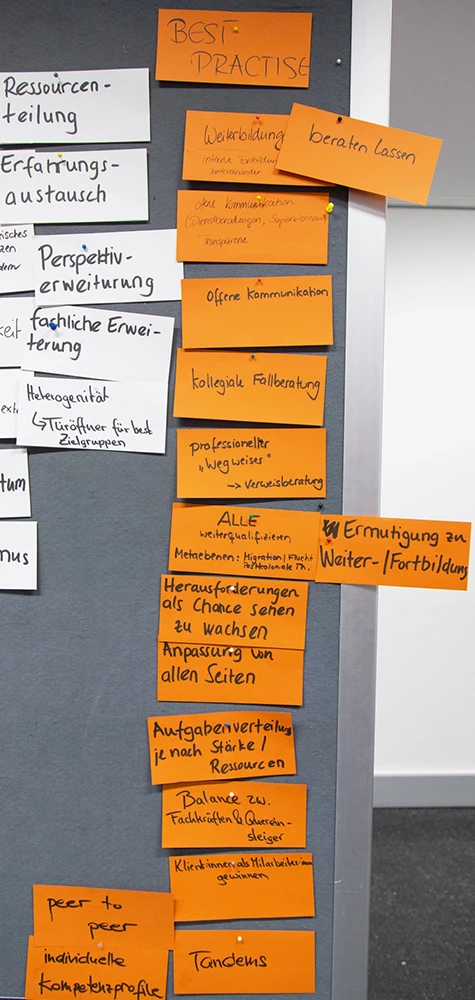 BEST
PRACTISE
Ressourcen-
teilung
Erfahrungs-
austausch
Perspektiv-
erweiturung
fachliche Erwei-
terung
Heterogenität
↳ Türöffner für best.
Zielgruppen
tum
mus
Weiterbildung
interne Fortbildung
untereinander
beraten lassen
offene Kommunikation
(Dienstberatungen, Supervisionen)
Transparenz
Offene Kommunikation
kollegiale Fallberatung
professioneller
„Wegweiser"
--> Verweisberatung
ALLE
weiterqualifizieren
Metaebenen: Migration/Flucht
Postkoloniale Th.
Ermutigung zu
Weiter-/Fortbildung
Herausforderungen
als Chance sehen
zu wachsen
Anpassung von
allen Seiten
Aufgabenverteilung
je nach Stärke/
Ressourcen
Balance zw.
Fachkräften & Querein-
steiger
Klient:innen als Mitarbeiter:innen
gewinnen
peer to
peer
individuelle
Kompetenzprofile
Tandems